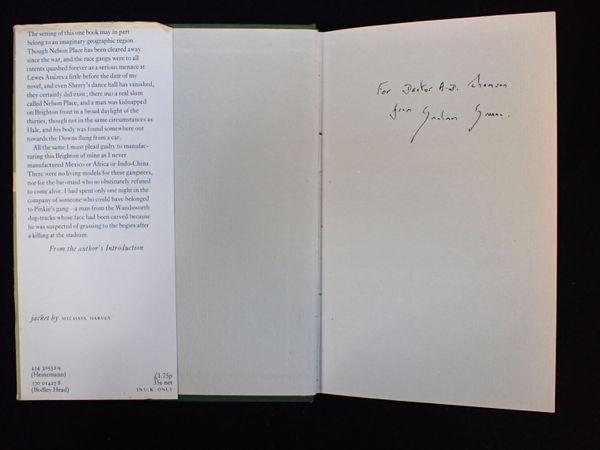 The setting of this one book may in part
belong to an imaginary geographic region.
Though Nelson Place has been cleared away
since the war, and the race gangs were to all
intents quashed forever as a serious menace at
Lewes Assizes a little before the date of my
novel, and even Sherry's dance hall has vanished,
they certainly did exist; there was a real slum
called Nelson Place, and a man was kidnapped
on Brighton front in a broad daylight of the
thirties, though not in the same circumstances as
Hale, and his body was found somewhere out
towards the Downs flung from a car.
All the same I must plead guilty to manufac-
turing this Brighton of mine as I never
manufactured Mexico or Africa or Indo-China.
There were no living models for these gangsters,
nor for the bar-maid who so obstinately refused
to come alive. I had spent only one night in the
company of someone who could have belonged
to Pinkie's gang—a man from the Wandsworth
dog-tracks whose face had been carved because
he was suspected of grassing to the bogies after
a killing at the stadium.
From the author's Introduction
jacket by MICHAEL HARVEY
434 30552 9
(Heinemann)
370 01427 8
(Bodley Head)
£1.75p
35s net
IN U.K. ONLY
For Doctor A.D.
from Graham Greene.